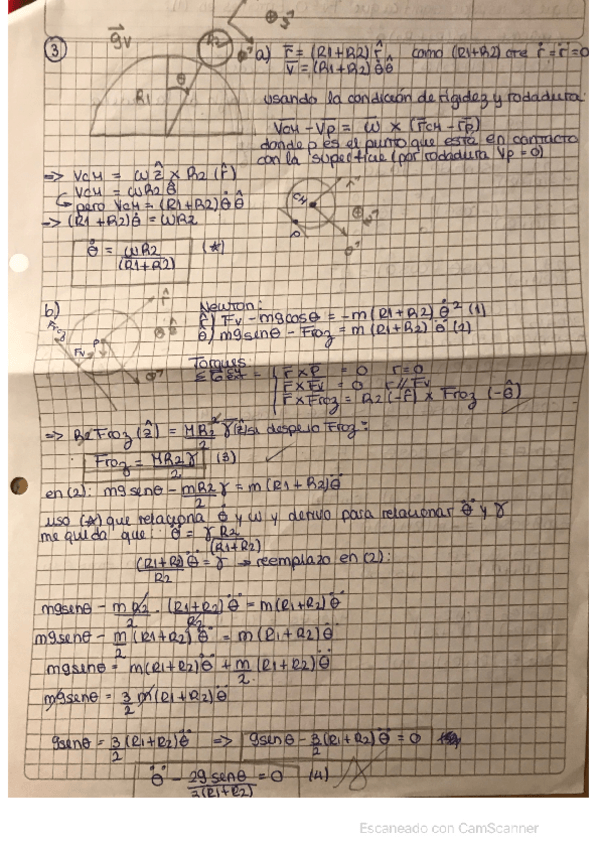 ③
gv
R2
R1
θ
a) r = (R1+R2) r̂, como (R1+R2) cte ṙ = r̈ = 0
v = (R1+R2) θ̇ θ̂
usando la condición de rigidez y rodadura:
VCM - VP = ω × (rCM - rP)
donde p es el punto que está en contacto
con la superficie (por rodadura VP = 0)
=> VCM = ω ẑ × R2 (r̂)
VCM = ω R2 θ̂
pero VCM = (R1+R2) θ̇ θ̂
=> (R1+R2) θ̇ = ω R2
θ̇ = ωR2/(R1+R2) (*)
CM
b)
Froz
Fv
P
Newton:
r̂) Fv - mg cosθ = -m (R1+R2) θ̇² (1)
θ̂) mg senθ - Froz = m (R1+R2) θ̈ (2)
Torques:
r × P = 0 r=0
r × Fv = 0 r // Fv
r × Froz = R2 (-r̂) × Froz (-θ̂)
=> R2 Froz (ẑ) = MR2²/2 γ(ẑ) si despejo Froz:
Froz = MR2 γ/2 (3)
en (2): mg senθ - mR2/2 γ = m (R1+R2) θ̈
uso (*) que relaciona θ̇ y ω y derivo para relacionar θ̈ y γ
me queda que: θ̈ = γ R2/(R1+R2)
(R1+R2) θ̈/R2 = γ → reemplazo en (2):
mg senθ - m R2/2 · (R1+R2) θ̈/R2 = m (R1+R2) θ̈
mg senθ - m/2 (R1+R2) θ̈ = m (R1+R2) θ̈
mg senθ = m (R1+R2) θ̈ + m/2 (R1+R2) θ̈
mg senθ = 3/2 m (R1+R2) θ̈
g senθ = 3/2 (R1+R2) θ̈ => g senθ - 3/2 (R1+R2) θ̈ = 0
θ̈ - 2g senθ/3(R1+R2) = 0 (4)
Escaneado con CamScanner